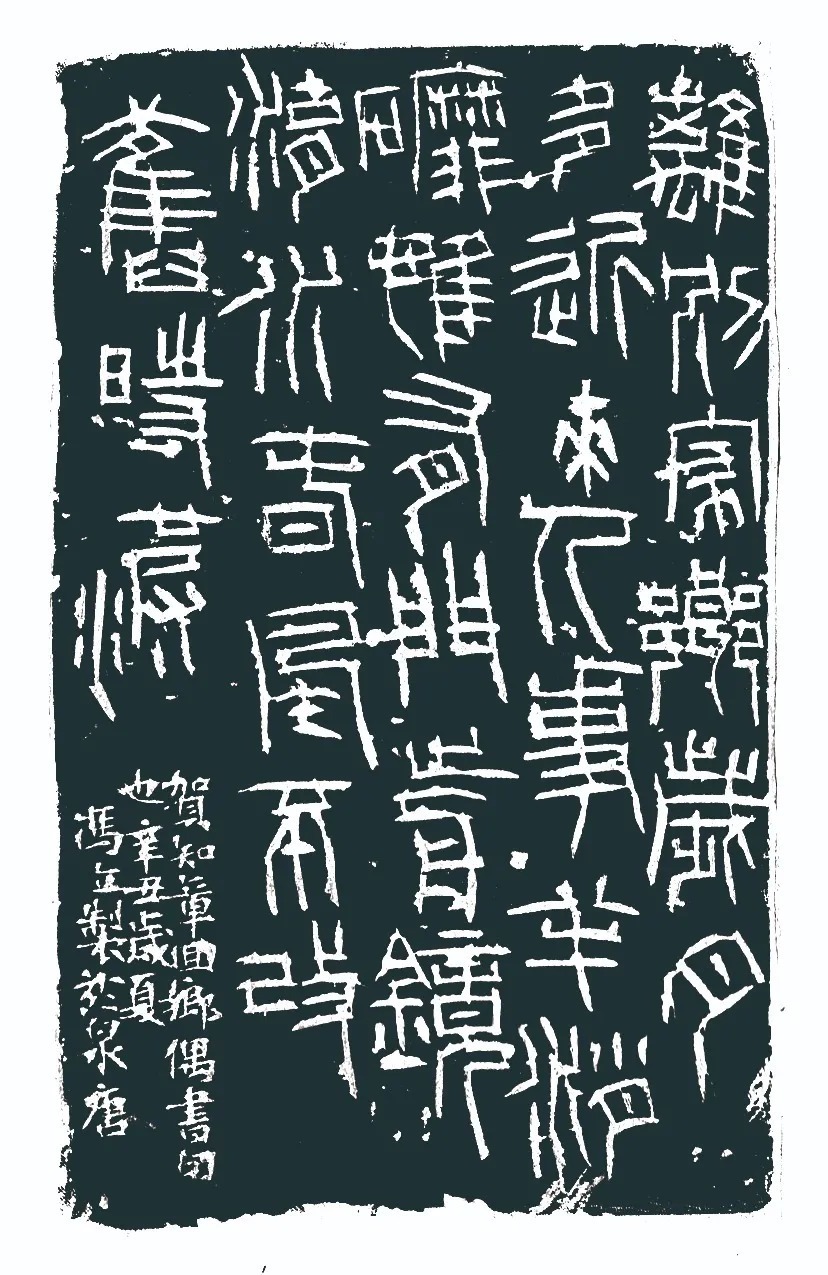 離別家鄉歲月
多近來人事半消
磨惟有門前鏡
湖水春風不改
舊時波
賀知章回鄉偶書
也辛丑歲夏
馮立製於泉唐